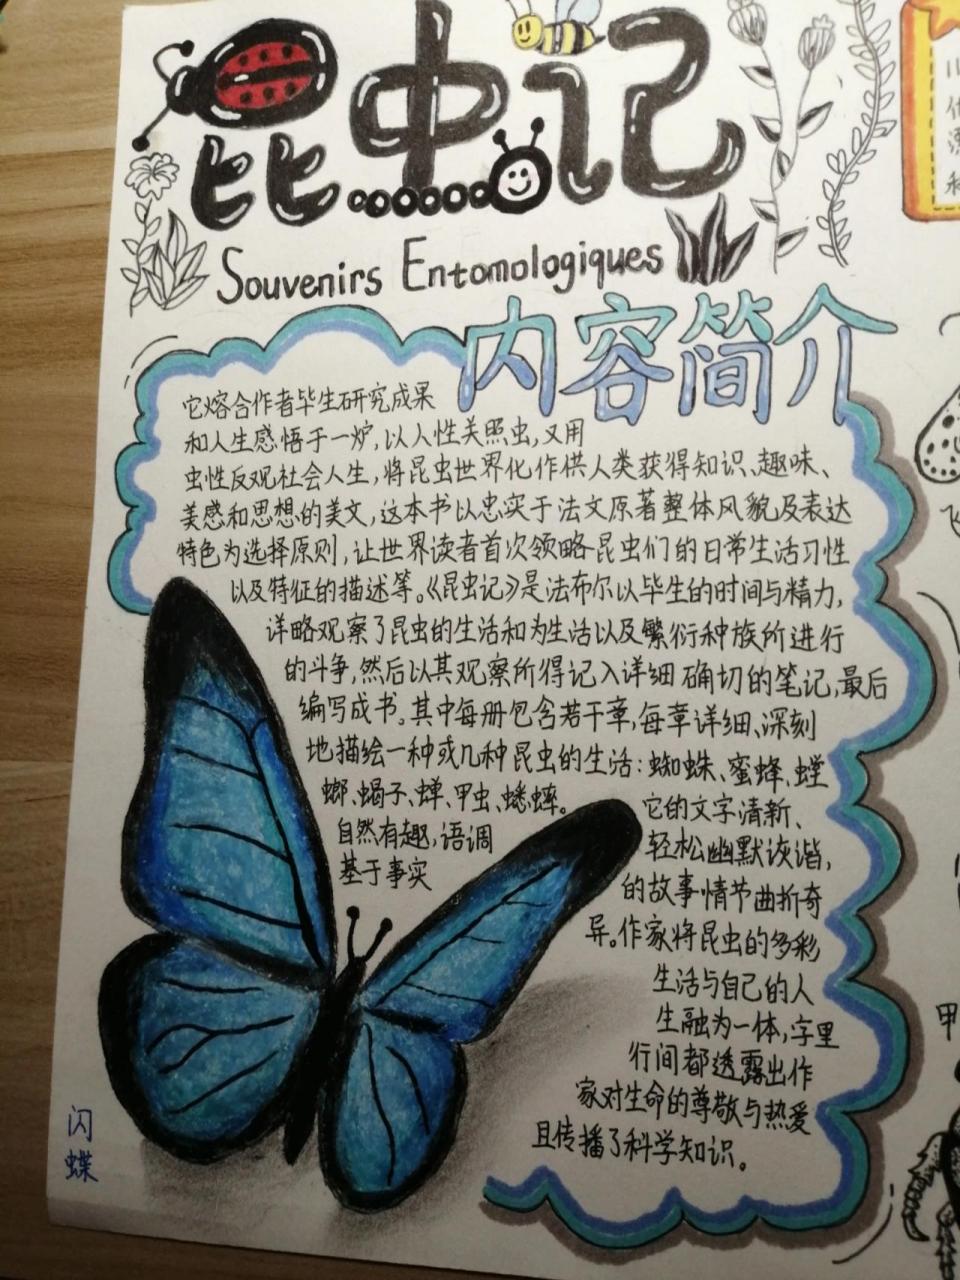 昆虫记
Souvenirs Entomologiques
内容简介
它熔合作者毕生研究成果
和人生感悟于一炉,以人性关照虫,又用
虫性反观社会人生,将昆虫世界化作供人类获得知识、趣味、
美感和思想的美文,这本书以忠实于法文原著整体风貌及表达
特色为选择原则,让世界读者首次领略昆虫们的日常生活习性
以及特征的描述等。《昆虫记》是法布尔以毕生的时间与精力,
详略观察了昆虫的生活和为生活以及繁衍种族所进行
的斗争,然后以其观察所得记入详细确切的笔记,最后
编写成书。其中每册包含若干章,每章详细、深刻
地描绘一种或几种昆虫的生活:蜘蛛、蜜蜂、螳
螂、蝎子、蝉、甲虫、蟋蟀。
它的文字清新、
自然有趣,语调
轻松幽默诙谐,
基于事实
的故事情节曲折奇
异。作家将昆虫的多彩
生活与自己的人
生融为一体,字里
行间都透露出作
家对生命的尊敬与热爱
且传播了科学知识。
闪
蝶
甲